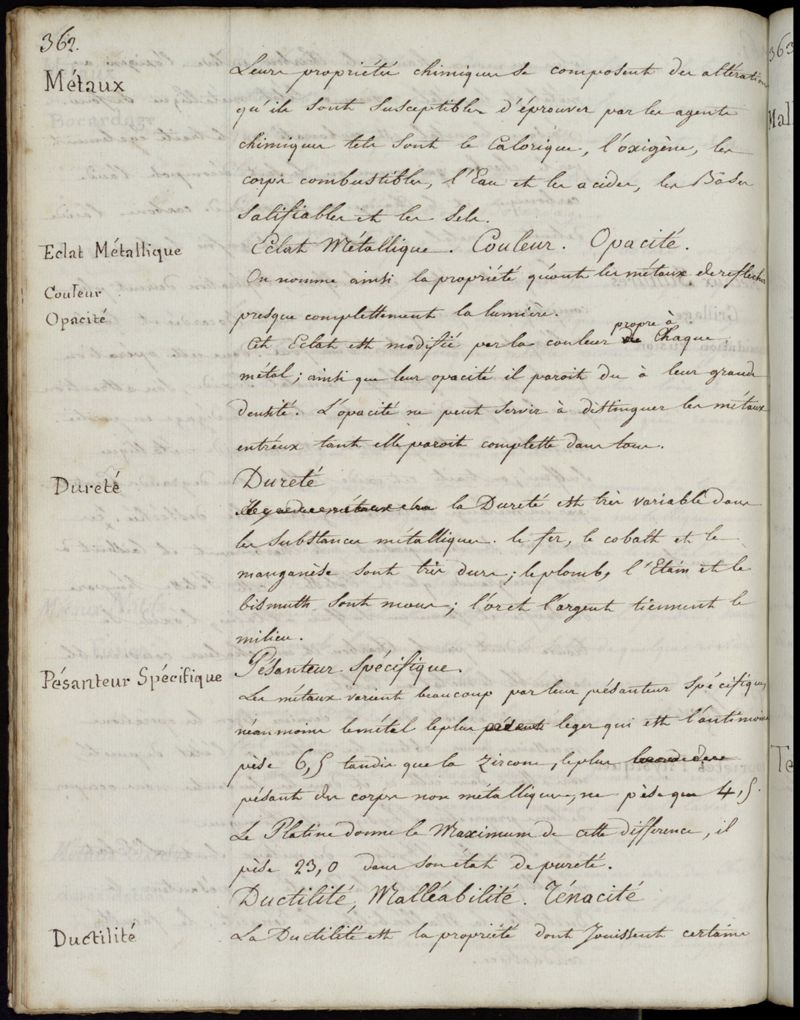 362.
Métaux
Leurs propriétés chimiques se composent des altérations
qu'ils sont susceptibles d'éprouver par les agents
chimiques tels sont le Calorique, l'oxigène, les
corps combustibles, l'Eau et les acides, les Bases
salifiables et les sels.
Eclat Métallique
Eclat Métallique. Couleur. Opacité.
Couleur
Opacité
On nomme ainsi la propriété qu'ont les métaux de reflechir
presque complettement la lumière.
propre à
Cet Eclat est modifié par la couleur de Chaque
métal; ainsi que leur opacité il paroit du à leur grande
densité. L'opacité ne peut servir à distinguer les métaux
entréux tant elle paroit complette dans tous.
Dureté
Dureté
la Dureté est très variable dans
les substances métalliques. le fer, le cobalt et le
manganèse sont très durs; le plomb, l'Etain et le
bismuth sont mous; l'or et l'argent tiennent le
milieu.
Pésanteur Spécifique
Pésanteur Spécifique.
Les métaux varient beaucoup par leur pésanteur spécifique,
néanmoins le métal le plus leger qui est l'antimoine
pèse 6,5 tandis que la zircone, le plus
pésant des corps non métalliques, ne pèse que 4,5.
Le Platine donne le Maximum de cette difference, il
pèse 23,0 dans son état de pureté.
Ductilité, Malléabilité. Ténacité
Ductilité
La Ductilité est la propriété dont Jouissent certains
363
Mal
Te